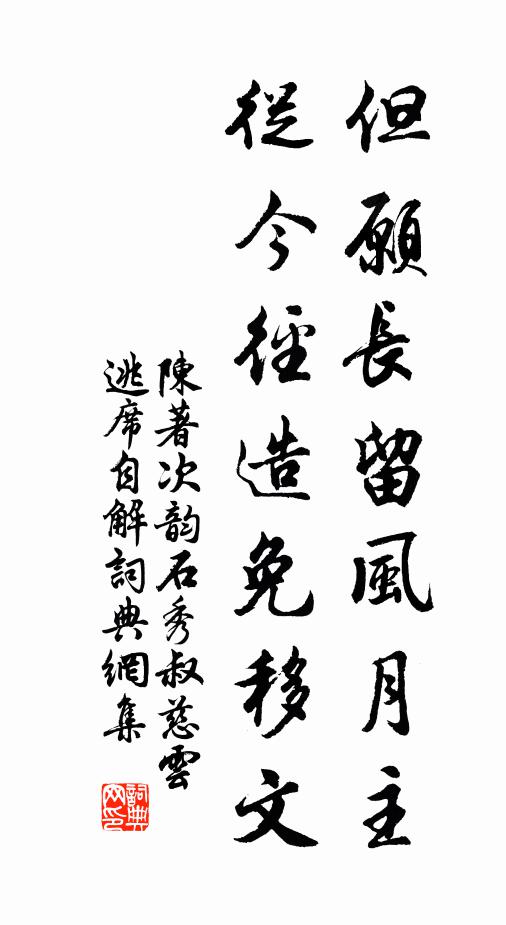 但願長留風月主
從今徑造免移文
陳著次韵石秀叔慈雲
逃席自解詞典網集
詞典网印